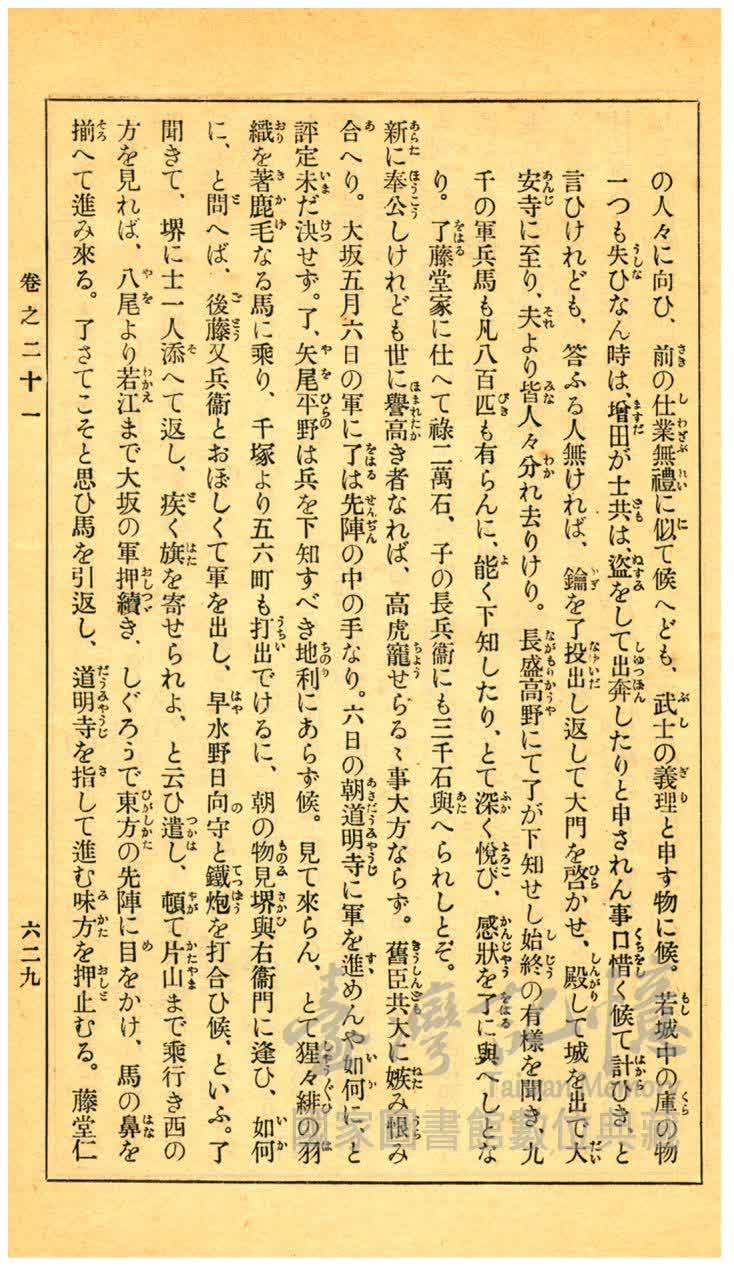 の人々に向ひ、前の仕業無禮に似て候へども、武士の義理と申す物に候。若城中の庫の物
一つも失ひなん時は、增田が士共は、盜をして出奔したりと申されん事口惜く候て計ひき、と
言ひけれども、答ふる人無ければ、鑰を了投出し返して大門を啓かせ、殿して城を出で大
安寺に至り、夫より皆人々分れ去りけり。長盛高野にて了が下知せし始終の有樣を聞き、九
千の軍兵馬も凡八百匹も有らんに、能く下知したり、とて深く悅び、感狀を了に與へしとな
り。了藤堂家に仕へて祿二萬石、子の長兵衞にも三千石與へられしとぞ。
新に奉公しけれども世に譽高き者なれば、高虎寵せらるゝ事大方ならず。舊臣共大に嫉み恨み
合へり。大坂五月六日の軍に了は先陣の中の手なり。六日の朝道明寺に軍を進めんや如何に、と
評定未だ決せず。了、矢尾平野は兵を下知すべき地利にあらず候。見て來らん、とて猩々緋の羽
織を著鹿毛なる馬に乘り、千塚より五六町も打出でけるに、朝の物見堺與右衞門に逢ひ、如何
に、と問へば、後藤又兵衞とおぼしくて軍を出し、早水野日向守と鐵炮を打合ひ候、といふ。了
聞きて、堺に士一人添へて返し、疾く旗を寄せられよ、と云ひ遣し、頓て片山まで乘行き西の
方を見れば、八尾より若江まで大坂の軍押續き、しぐろうで東方の先陣に目をかけ、馬の鼻を
揃へて進み來る。了さてこそと思ひ馬を引返し、道明寺を指して進む味方を押止むる。藤堂仁
卷之二十一
六二九
臺灣記憶
Taiwan Memory
國家圖書館數位典藏